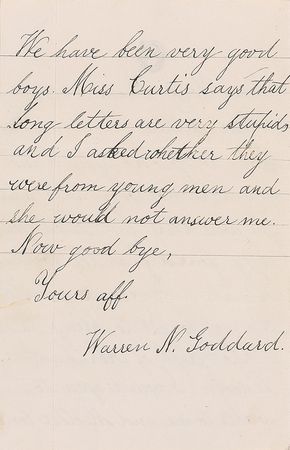 We have been very good
boys. Miss Curtis says that
long letters are very stupid
and I asked whether they
were from young men and
she would not answer me.
Now good bye,
Yours aff.
Warren N. Goddard.